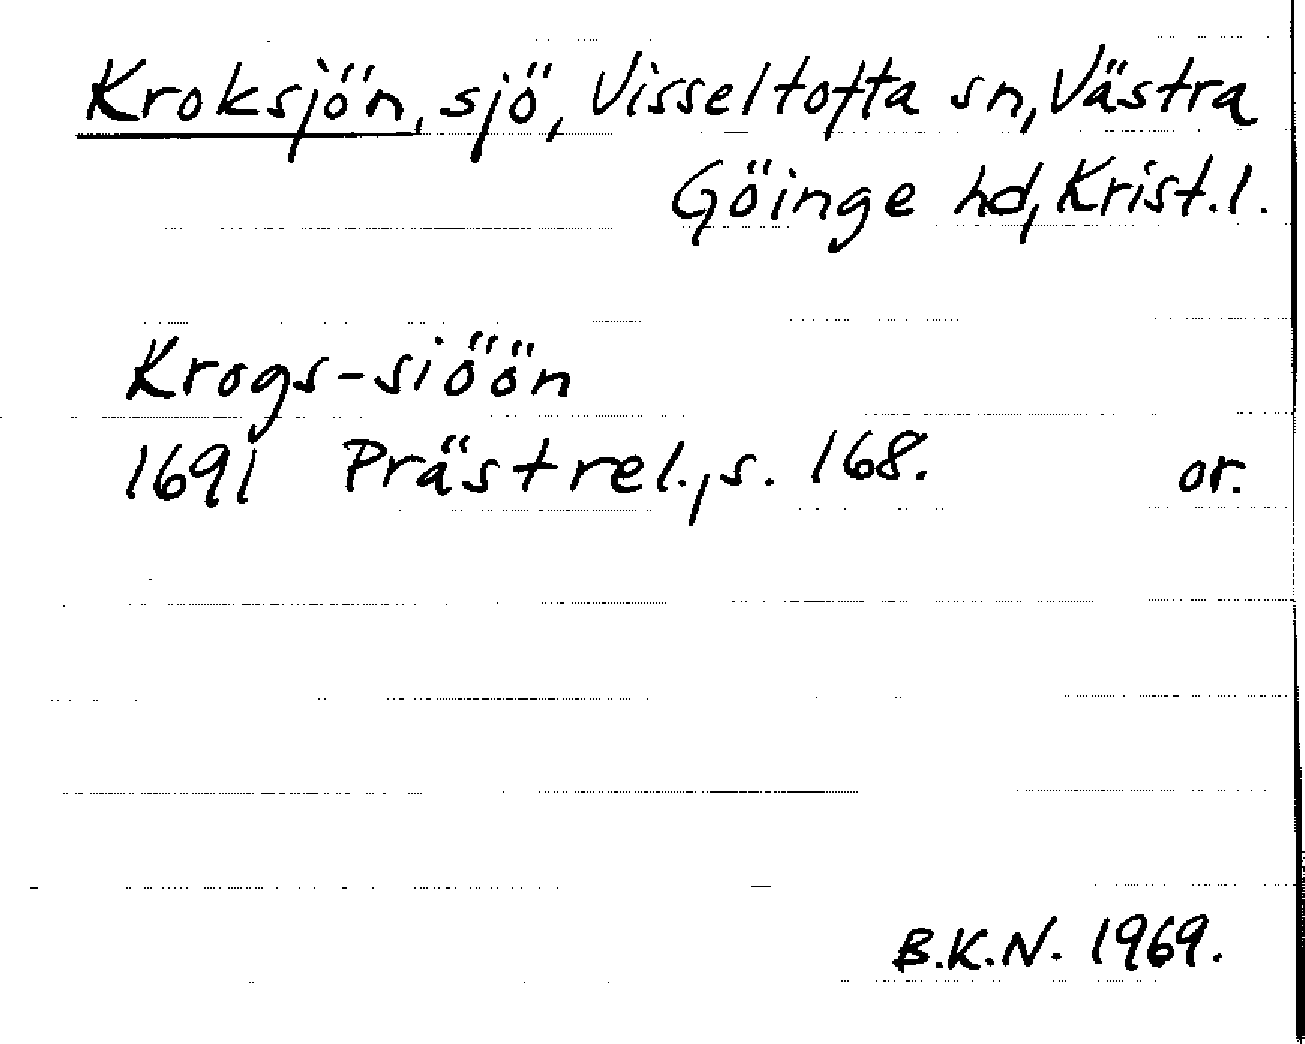 Kroksjön, sjö, Visseltofta sn, Västra
Göinge hd, Krist.l.
Krogs-siöön
1691 Prästrel., s. 168. or.
B.K.N. 1969.